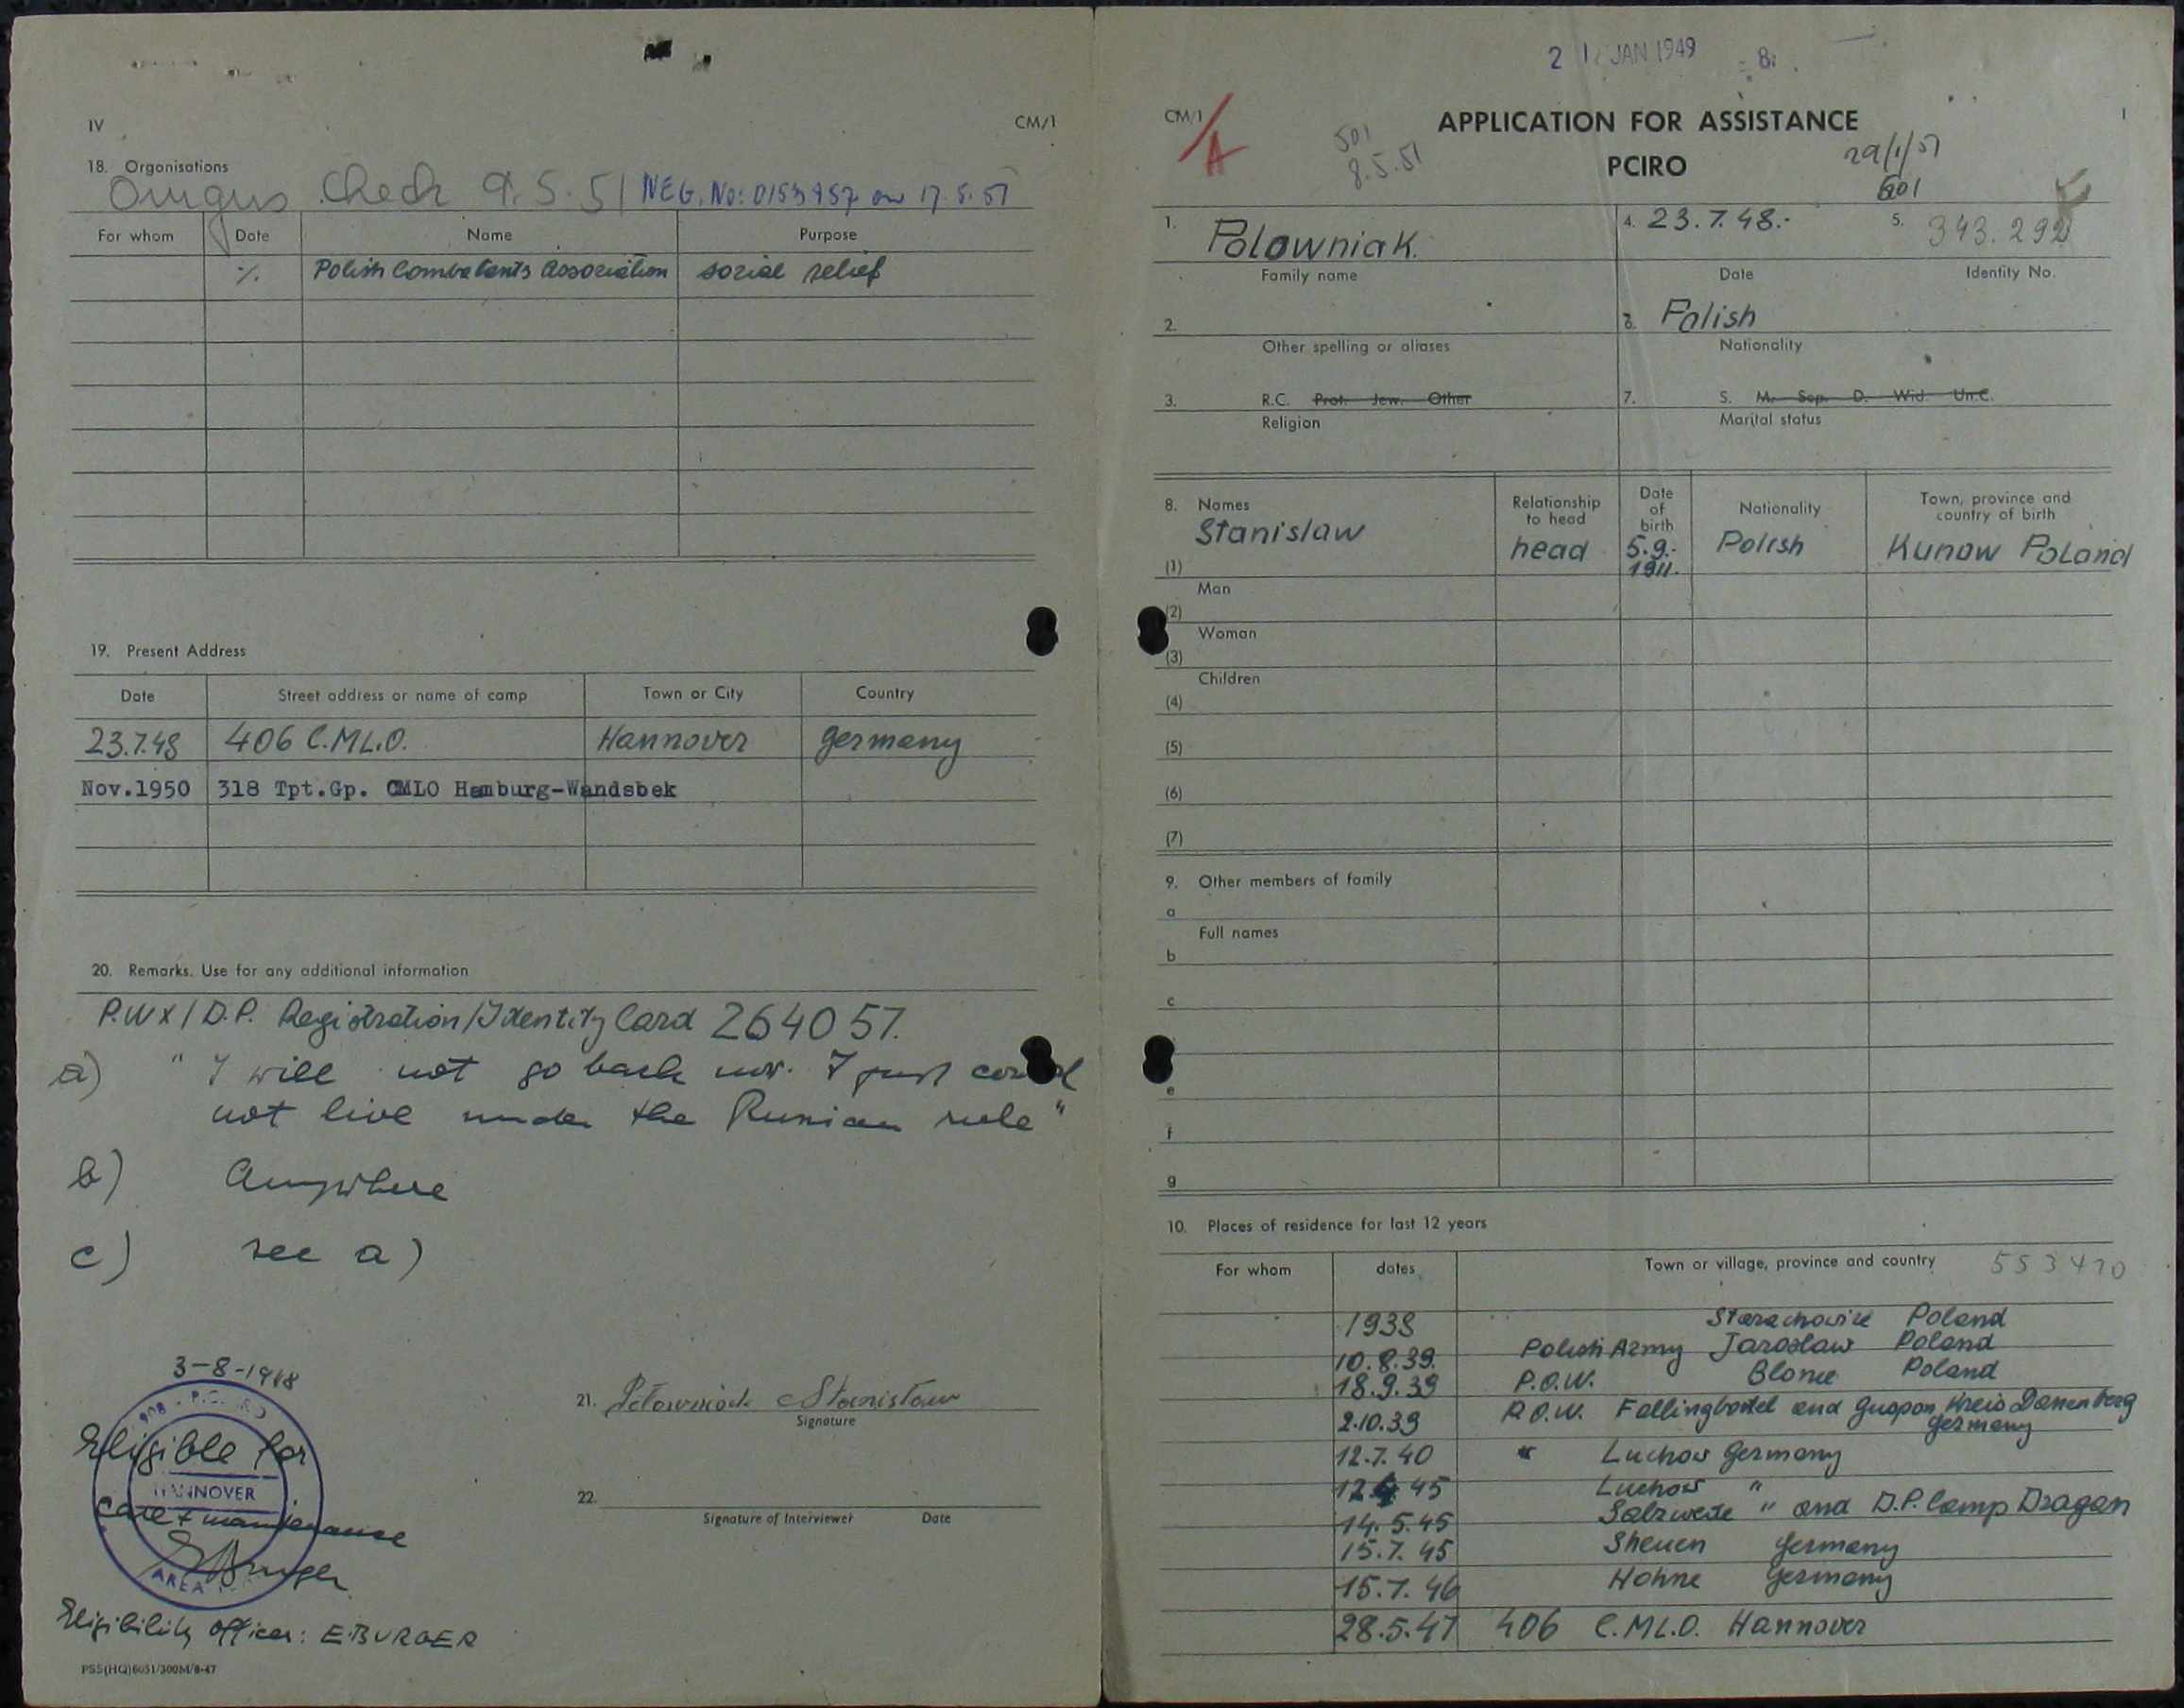 IV
CM/1
18. Organisations
Check 9.5.51 NEG. No: 0153457 on 17.5.51
For whom Date Name Purpose
%. Polish Combatants Association social relief
19. Present Address
Date Street address or name of camp Town or City Country
23.7.48 406 C.M.L.O. Hannover Germany
Nov.1950 318 Tpt.Gp. CMLO Hamburg-Wandsbek
20. Remarks. Use for any additional information
P.W.X / D.P. Registration/Identity Card 264057.
a) " I will not go back now. I just could
not live under the Russian rule "
b) Anywhere
c) see a)
3-8-1948
Eligible for
HANNOVER
care + maintenance
AREA
Eligibility officer: E. BURGER
21. Stanisław
Signature
22.
Signature of Interviewer Date
PSS(HQ)6051/300M/8-47
21 JAN 1949
CM/1
A
501
8.5.51
APPLICATION FOR ASSISTANCE
PCIRO
I
29/1/51
501
1. Polowniak.
Family name
4. 23.7.48.-
Date
5. 343.292
Identity No.
2.
Other spelling or aliases
6. Polish
Nationality
3. R.C. Prot. Jew. Other
Religion
7. S. M. Sep. D. Wid. Un.C.
Marital status
8. Names Relationship to head Date of birth Nationality Town, province and country of birth
Stanislaw head 5.9.- 1911. Polish Kunow Poland
(1)
Man
(2)
Woman
(3)
Children
(4)
(5)
(6)
(7)
9. Other members of family
a
Full names
b
c
e
f
g
10. Places of residence for last 12 years
For whom dates Town or village, province and country 553470
1938 Starachowice Poland
10.8.39. Polish Army Jaroslaw Poland
18.9.39 P.O.W. Blonie Poland
2.10.39 P.O.W. Fallingbostel and Kreis Danenberg
Germany
12.7.40 " Luchow Germany
12.4 45 Luchow "
14.5.45 Salzwede " and D.P. Camp Dragan
15.7.45 Sheuen Germany
15.7.46 Hohne Germany
28.5.47 406 C.M.L.O. Hannover